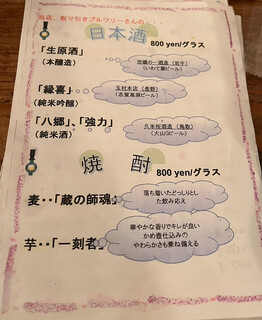 当店、取り引きブルワリーさんの・・・
日本酒
800 yen/グラス
「生原酒」
(本醸造)
世嬉の一酒造(岩手)
(いわて蔵ビール)
「縁喜」
(純米吟醸)
玉村本店(長野)
(志賀高原ビール)
「八郷」、「強力」
(純米酒)
久米桜酒造(鳥取)
(大山Gビール)
焼酎
800 yen/グラス
麦・・「蔵の師魂」
落ち着いたどっしりとし
た飲み応え
芋・・「一刻者」
華やかな香りでキレが良い
かめ壺仕込みの
やわらかさも兼ね備える